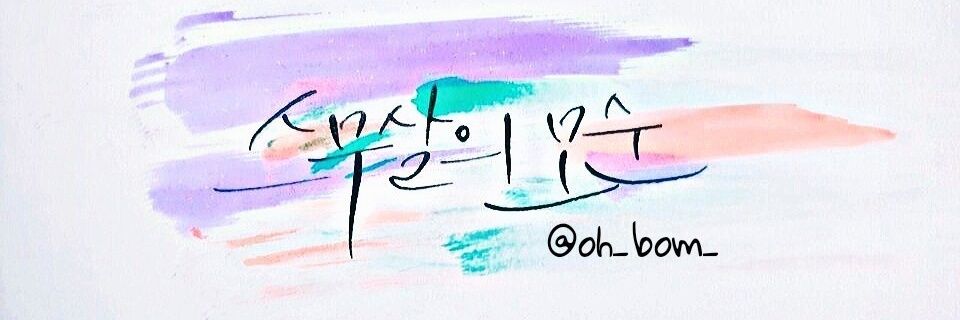 스무살의 모순
@oh_bom_